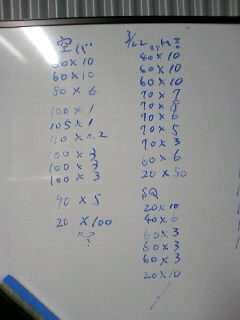 空バ
60×10
60×10
80×6
100×1
105×1
110×2
100×3
100×3
100×3
90×5
20×100
?
3/22
40×10
60×10
60×10
70×7
70×8
70×6
70×5
70×3
60×6
20×50
SQ
20×10
40×6
60×3
60×3
60×3
20×10